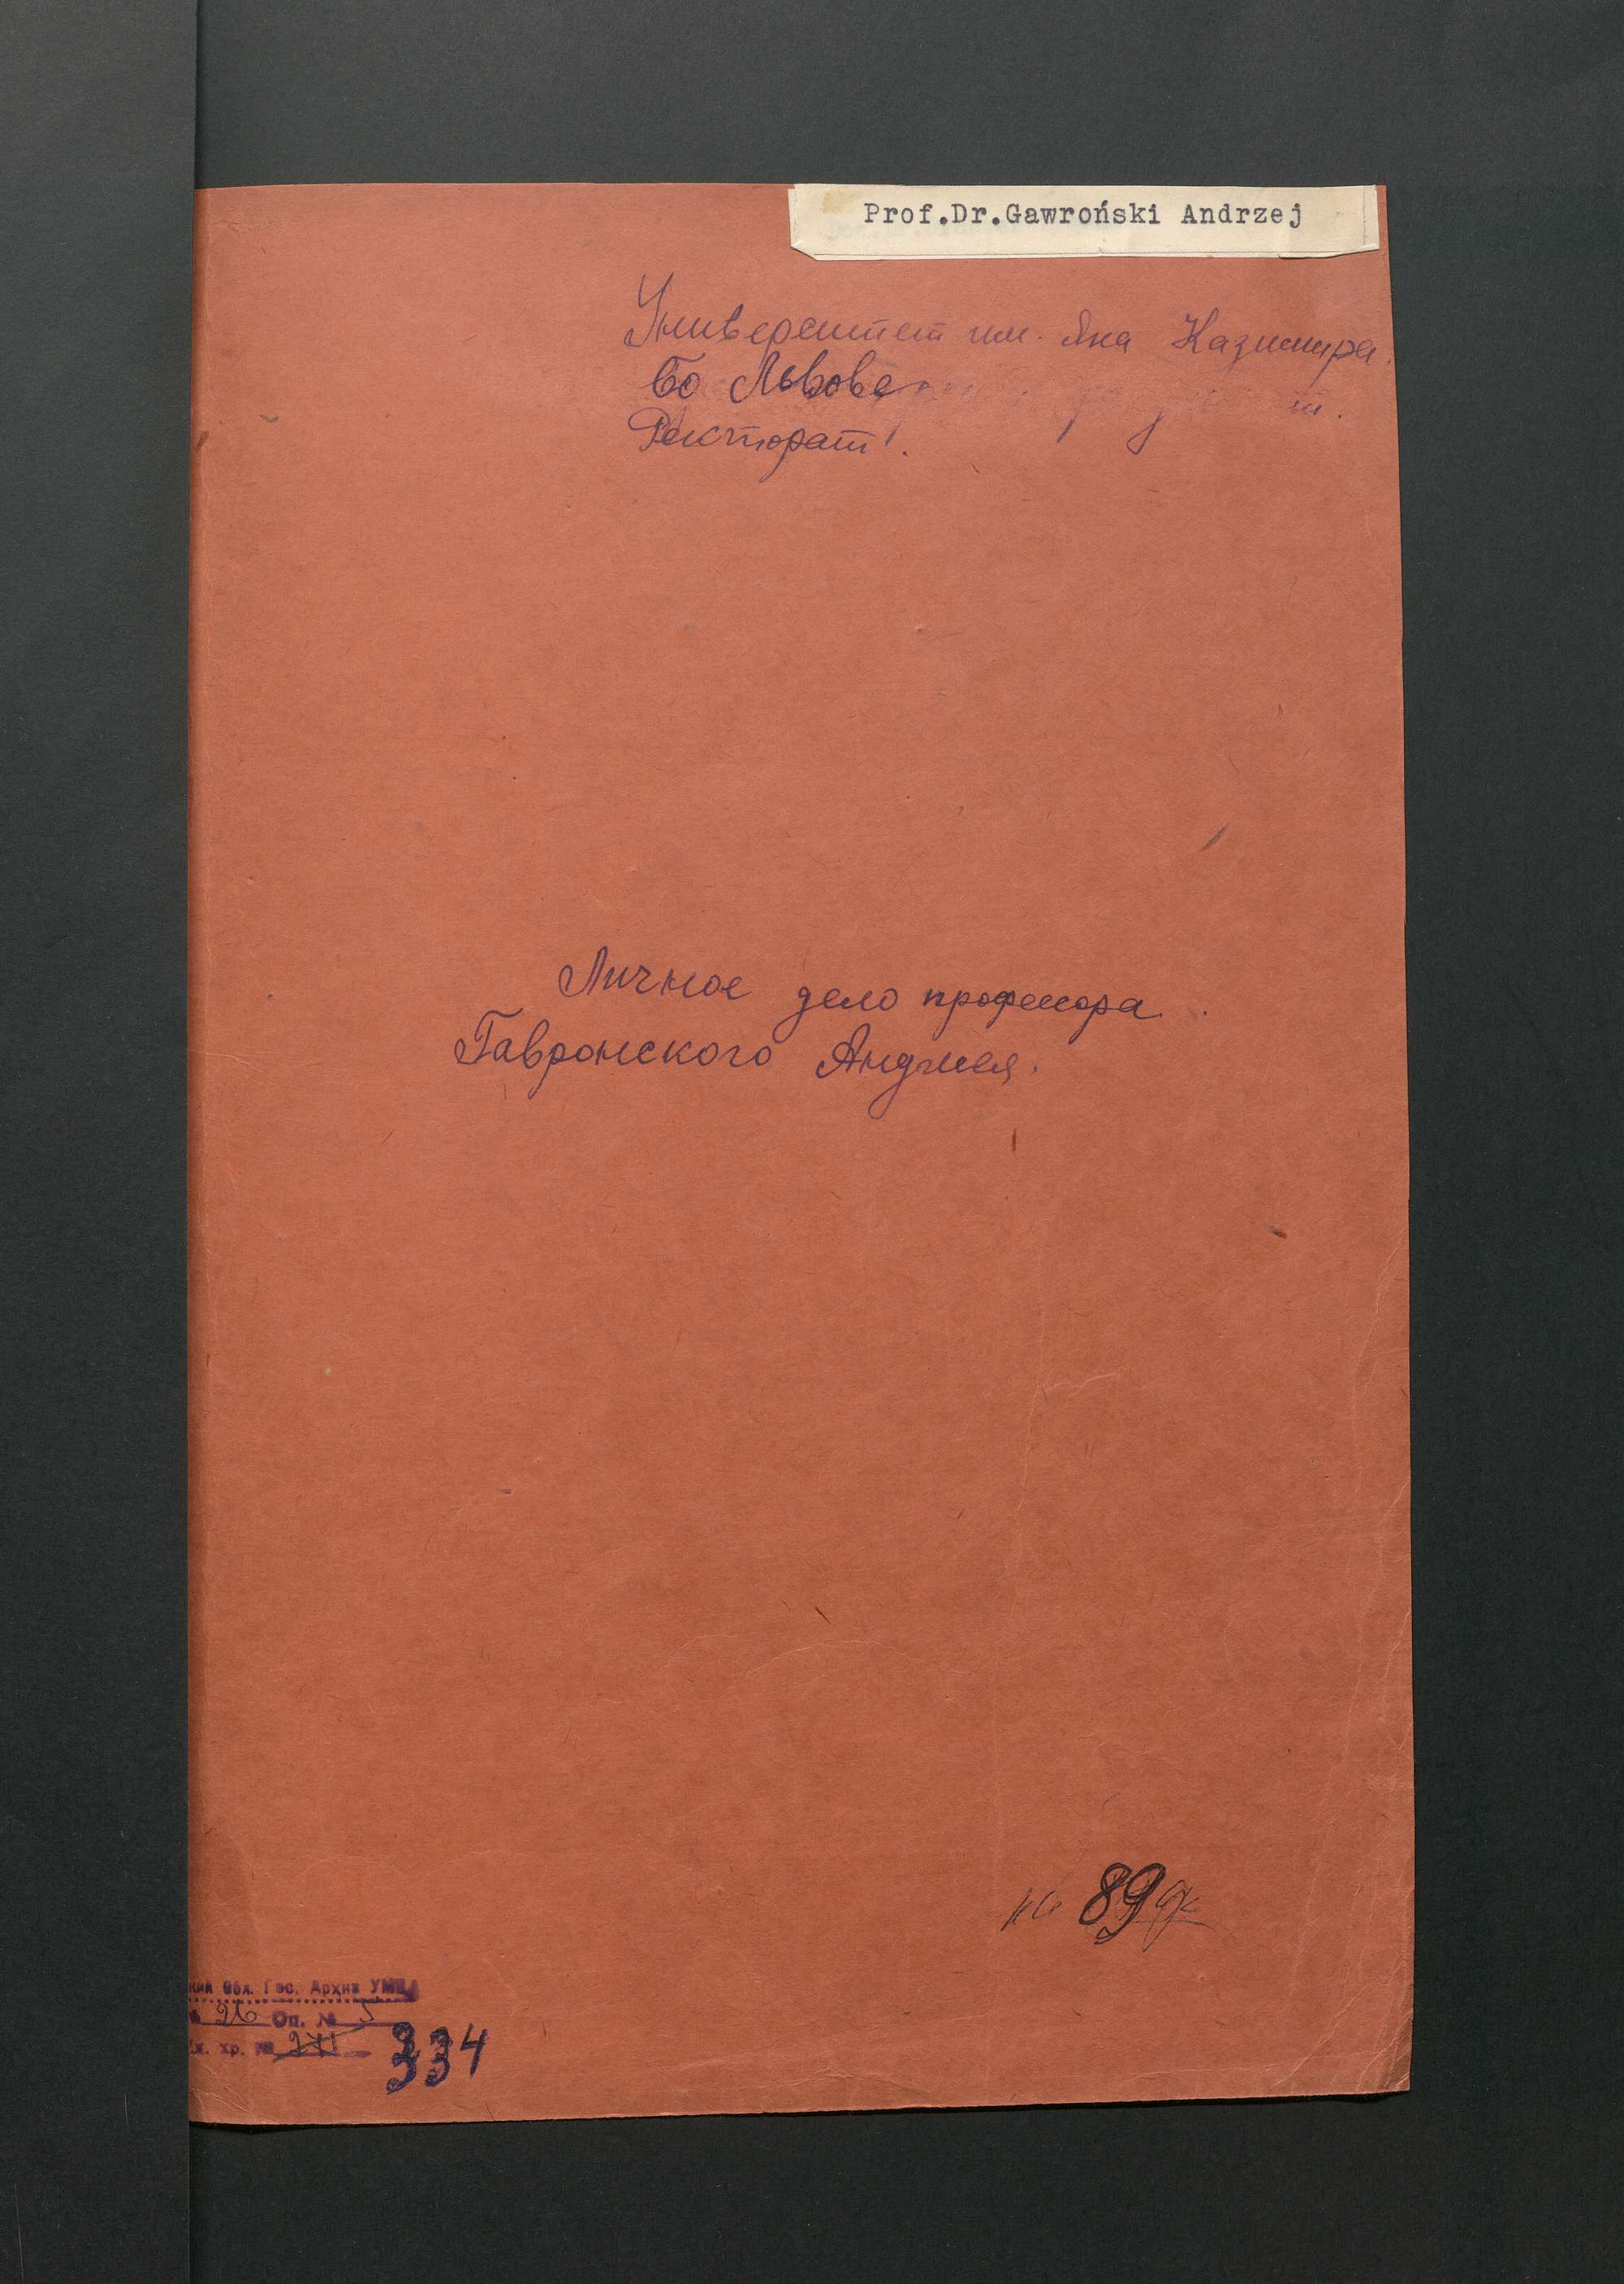 Prof.Dr.Gawroński Andrzej
Университет им. Яна Казимира.
во Львове
Ректорат.
Личное дело професора
Гавронского Андрея.
на 89
кий Обл. Гос. Архив УМВД
№ 26 Оп. № 5
Ед. хр. №
334